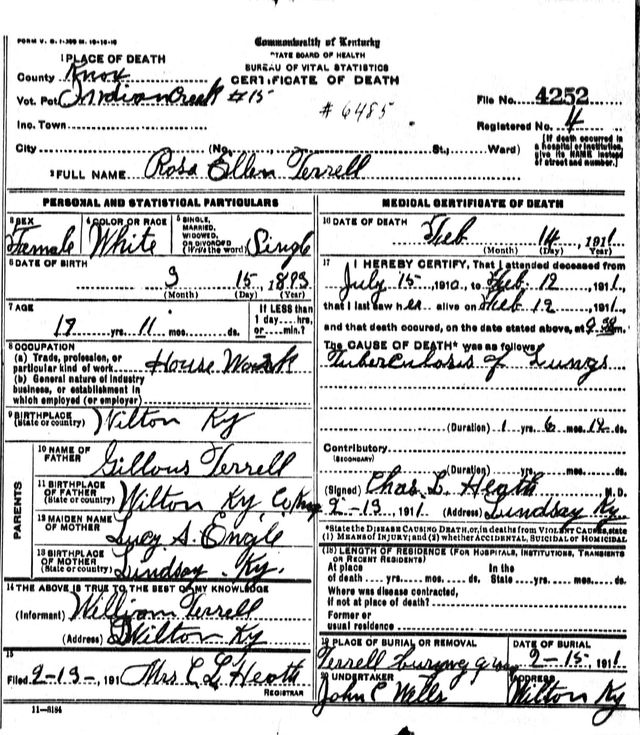 FORM V. S. 1-
Commonwealth of Kentucky
STATE BOARD OF HEALTH
BUREAU OF VITAL STATISTICS
CERTIFICATE OF DEATH
1 PLACE OF DEATH
County Knox
Vot. Pct Indian Creek #15
#6485
File No. 4252
Inc. Town
Registered No. 4
City (No. St., Ward)
[If death occurred in a hospital or institution, give its NAME instead of street and number.]
2 FULL NAME Rosa Ellen Terrell
PERSONAL AND STATISTICAL PARTICULARS
3 SEX Female
4 COLOR OR RACE White
5 SINGLE, MARRIED, WIDOWED, OR DIVORCED (Write the word) Single
6 DATE OF BIRTH
3 15 1893
(Month) (Day) (Year)
7 AGE
17 yrs. 11 mos. ds.
If LESS than 1 day....hrs. or....min.?
8 OCCUPATION
(a) Trade, profession, or particular kind of work House Work
(b) General nature of industry business, or establishment in which employed (or employer)
9 BIRTHPLACE (State or country) Wilton Ky
PARENTS
10 NAME OF FATHER Gillous Terrell
11 BIRTHPLACE OF FATHER (State or country) Wilton Ky, Co Knox
12 MAIDEN NAME OF MOTHER Lucy A. Engle
13 BIRTHPLACE OF MOTHER (State or country) Lindsay, Ky.
14 THE ABOVE IS TRUE TO THE BEST OF MY KNOWLEDGE
(Informant) William Terrell
(Address) Wilton Ky
15
Filed 2-13-, 191 Mrs C L Heath
REGISTRAR
11-5184
MEDICAL CERTIFICATE OF DEATH
16 DATE OF DEATH
Feb 14, 1911
(Month) (Day) Year
17 I HEREBY CERTIFY, That I attended deceased from
July 15, 1910, to Feb. 12, 1911,
that I last saw her alive on Feb 12, 1911,
and that death occured, on the date stated above, at m.
The CAUSE OF DEATH* was as follows
Tuberculosis of Lungs
(Duration) 1 yrs. 6 mos. 12 ds.
Contributory
(SECONDARY)
(Duration) yrs. mos. ds.
(Signed) Chas. L. Heath M. D.
2-13, 1911 (Address) Lindsay Ky.
*State the DISEASE CAUSING DEATH, or, in deaths from VIOLENT CAUSES, state (1) MEANS OF INJURY; and (2) whether ACCIDENTAL, SUICIDAL OR HOMICIDAL
(18) LENGTH OF RESIDENCE (FOR HOSPITALS, INSTITUTIONS, TRANSIENTS OR RECENT RESIDENTS)
At place of death yrs. mos. ds.
In the State yrs. mos. ds.
Where was disease contracted, if not at place of death?
Former or usual residence
19 PLACE OF BURIAL OR REMOVAL
Terrell burying
DATE OF BURIAL
2-15, 1911
20 UNDERTAKER
John C Wells
ADDRESS
Wilton Ky